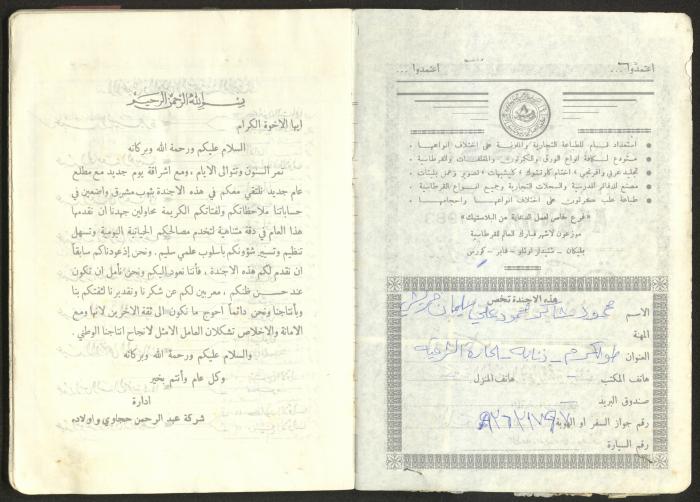 بسم الله الرحمن الرحيم
ايها الاخوة الكرام
السلام عليكم ورحمة الله وبركاته
تمر السنون وتتوالى الايام ، ومع اشراقة يوم جديد مع مطلع
عام جديد نلتقي معكم في هذه الاجندة بثوب مشرق واضعين في
حساباتنا ملاحظاتكم ولفتاتكم الكريمة محاولين جهدنا ان نقدمها
هذا العام في دقة متناهية لتخدم مصالحكم الحياتية اليومية وتسهل
تنظيم وتسيير شؤونكم بأسلوب علمي سليم . ونحن إذ عودناكم سابقاً
ان نقدم لكم هذه الاجندة ، فأننا نعود اليكم ونحن نأمل ان تكون
عند حسن ظنكم ، معربين لكم عن شكرنا وتقديرنا لثقتكم بنا
وبأنتاجنا ونحن دائماً أحوج ما نكون الى ثقة الاخرين لانها ومع
الامانة والاخلاص تشكلان العامل الامثل لانجاح انتاجنا الوطني .
والسلام عليكم ورحمة الله وبركاته
وكل عام وأنتم بخير
ادارة
شركة عبد الرحمن حجاوي واولاده
اعتمدوا ... اعتمدوا ...
● استعداد تام للطباعة التجارية والفنية على اختلاف انواعها .
● مستودع لكافة انواع الورق والكرتون والمغلفات والقرطاسية
● تجليد عربي وافرنجي ، اختام كاوتشوك ، كليشيهات ، تصوير وعمل بليتات
● مصنع للدفاتر المدرسية والسجلات التجارية وجميع انواع القرطاسية
● طباعة علب كرتون على اختلاف انواعها واحجامها .
« فرع خاص لعمل الدعاية من البلاستيك »
موزعون لاشهر ماركات العالم للقرطاسية
بليكان - شتيدلر لوتاو - فابر - كورس
هذه الاجندة تخص
الاسم محمود علي سليمان
المهنة
العنوان طولكرم - ذنابة - الحارة الشرقية
هاتف المكتب هاتف المنزل
صندوق البريد
رقم جواز السفر او الهوية
رقم السيارة